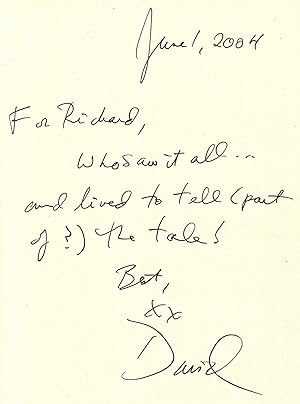 June 1, 2004
For Richard,
who saw it all...
and lived to tell (part
of?) the tale!
Best,
xx
David